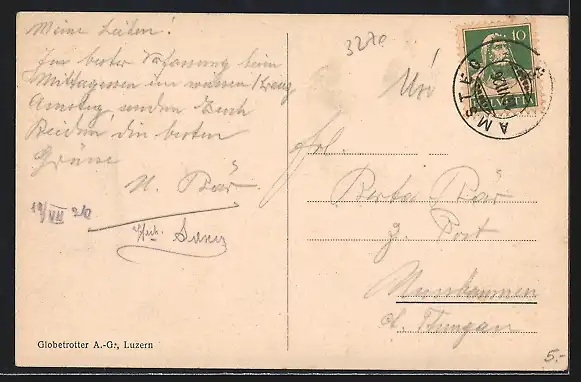 Meine Lieben!
In bester Verfassung beim
Mittagessen im weissen Kreuz
Amsteg senden Euch
Beiden die besten
Grüsse
H. Bär
19/VII 20
3270
Uri
10
HELVETIA
AMSTEG
Frl.
Berta Bär
z. Post
Ct. Thurgau
Globetrotter A.-G., Luzern
5.-